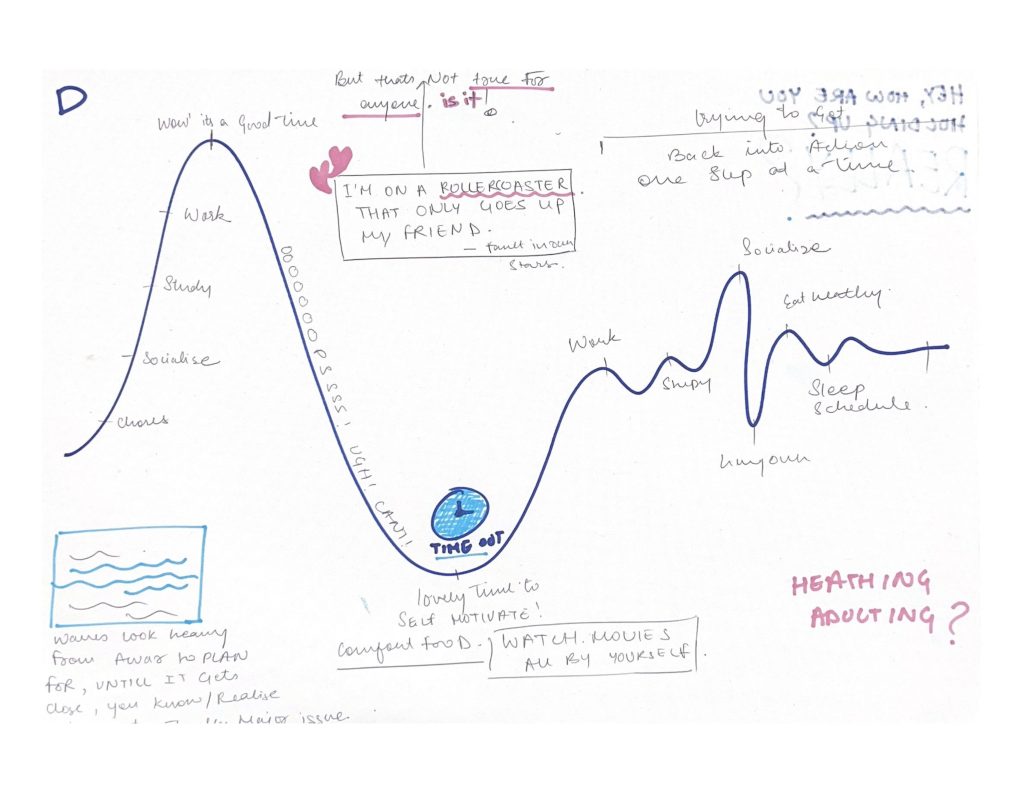 D
But thats Not true for
anyone. is it!
Wow' its a Good Time
Work
Study
Socialise
Chores
I'M ON A ROLLERCOASTER
THAT ONLY GOES UP
MY FRIEND.
— fault in our
Stars.
OOOOOOOPSSSSS! UGH! CAN'T!
HEY, HOW ARE YOU
HOLDING UP?
trying to Get
Back into Action
one Step at a time
Socialise
Eat healthy.
Work
Study
Sleep
Schedule.
TIME OUT
lovely Time to
SELF MOTIVATE!
Comfort food.
WATCH. MOVIES
All BY YOURSELF.
HEATHING
ADULTING?
Waves look heavy
from Away to PLAN
for, UNTILL IT Gets
Close, you know/Realise
Major issue.